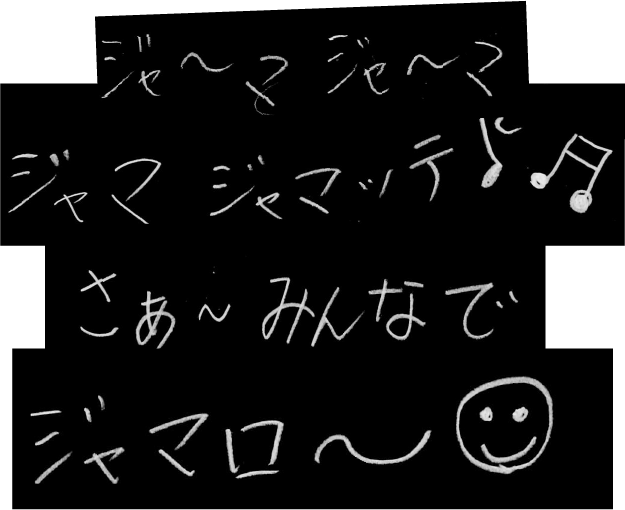 ジャ〜マ ジャ〜マ
ジャマ ジャマッテ♪♫
さぁ〜みんなで
ジャマロ〜☺